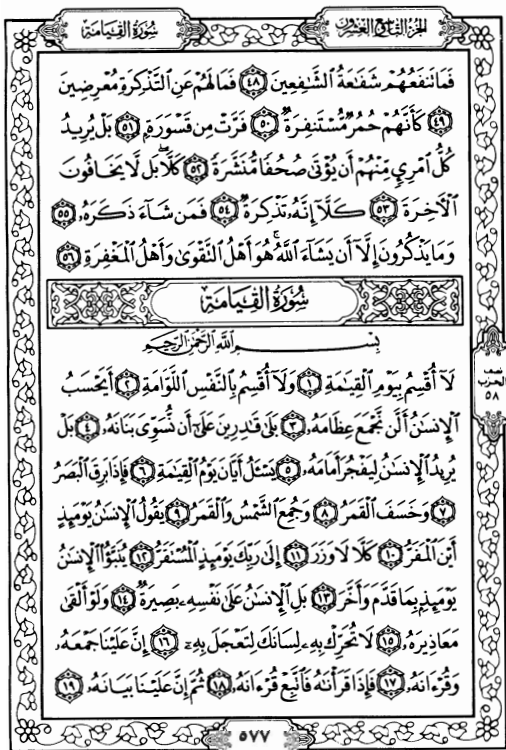 الجزء التاسع والعشرون
سورة القيامة
فَمَا تَنفَعُهُمْ شَفَٰعَةُ ٱلشَّٰفِعِينَ ٤٨ فَمَا لَهُمْ عَنِ ٱلتَّذْكِرَةِ مُعْرِضِينَ
٤٩ كَأَنَّهُمْ حُمُرٌ مُّسْتَنفِرَةٌ ٥٠ فَرَّتْ مِن قَسْوَرَةٍ ٥١ بَلْ يُرِيدُ
كُلُّ ٱمْرِئٍ مِّنْهُمْ أَن يُؤْتَىٰ صُحُفًا مُّنَشَّرَةً ٥٢ كَلَّا ۖ بَل لَّا يَخَافُونَ
ٱلْءَاخِرَةَ ٥٣ كَلَّآ إِنَّهُۥ تَذْكِرَةٌ ٥٤ فَمَن شَآءَ ذَكَرَهُۥ ٥٥
وَمَا يَذْكُرُونَ إِلَّآ أَن يَشَآءَ ٱللَّهُ ۚ هُوَ أَهْلُ ٱلتَّقْوَىٰ وَأَهْلُ ٱلْمَغْفِرَةِ ٥٦
سورة القيامة
بِسْمِ ٱللَّهِ ٱلرَّحْمَٰنِ ٱلرَّحِيمِ
لَآ أُقْسِمُ بِيَوْمِ ٱلْقِيَٰمَةِ ١ وَلَآ أُقْسِمُ بِٱلنَّفْسِ ٱللَّوَّامَةِ ٢ أَيَحْسَبُ
ٱلْإِنسَٰنُ أَلَّن نَّجْمَعَ عِظَامَهُۥ ٣ بَلَىٰ قَٰدِرِينَ عَلَىٰٓ أَن نُّسَوِّىَ بَنَانَهُۥ ٤ بَلْ
يُرِيدُ ٱلْإِنسَٰنُ لِيَفْجُرَ أَمَامَهُۥ ٥ يَسْـَٔلُ أَيَّانَ يَوْمُ ٱلْقِيَٰمَةِ ٦ فَإِذَا بَرِقَ ٱلْبَصَرُ
٧ وَخَسَفَ ٱلْقَمَرُ ٨ وَجُمِعَ ٱلشَّمْسُ وَٱلْقَمَرُ ٩ يَقُولُ ٱلْإِنسَٰنُ يَوْمَئِذٍ
أَيْنَ ٱلْمَفَرُّ ١٠ كَلَّا لَا وَزَرَ ١١ إِلَىٰ رَبِّكَ يَوْمَئِذٍ ٱلْمُسْتَقَرُّ ١٢ يُنَبَّؤُا۟ ٱلْإِنسَٰنُ
يَوْمَئِذٍۭ بِمَا قَدَّمَ وَأَخَّرَ ١٣ بَلِ ٱلْإِنسَٰنُ عَلَىٰ نَفْسِهِۦ بَصِيرَةٌ ١٤ وَلَوْ أَلْقَىٰ
مَعَاذِيرَهُۥ ١٥ لَا تُحَرِّكْ بِهِۦ لِسَانَكَ لِتَعْجَلَ بِهِۦٓ ١٦ إِنَّ عَلَيْنَا جَمْعَهُۥ
وَقُرْءَانَهُۥ ١٧ فَإِذَا قَرَأْنَٰهُ فَٱتَّبِعْ قُرْءَانَهُۥ ١٨ ثُمَّ إِنَّ عَلَيْنَا بَيَانَهُۥ ١٩
نصف
الحزب
٥٨
٥٧٧